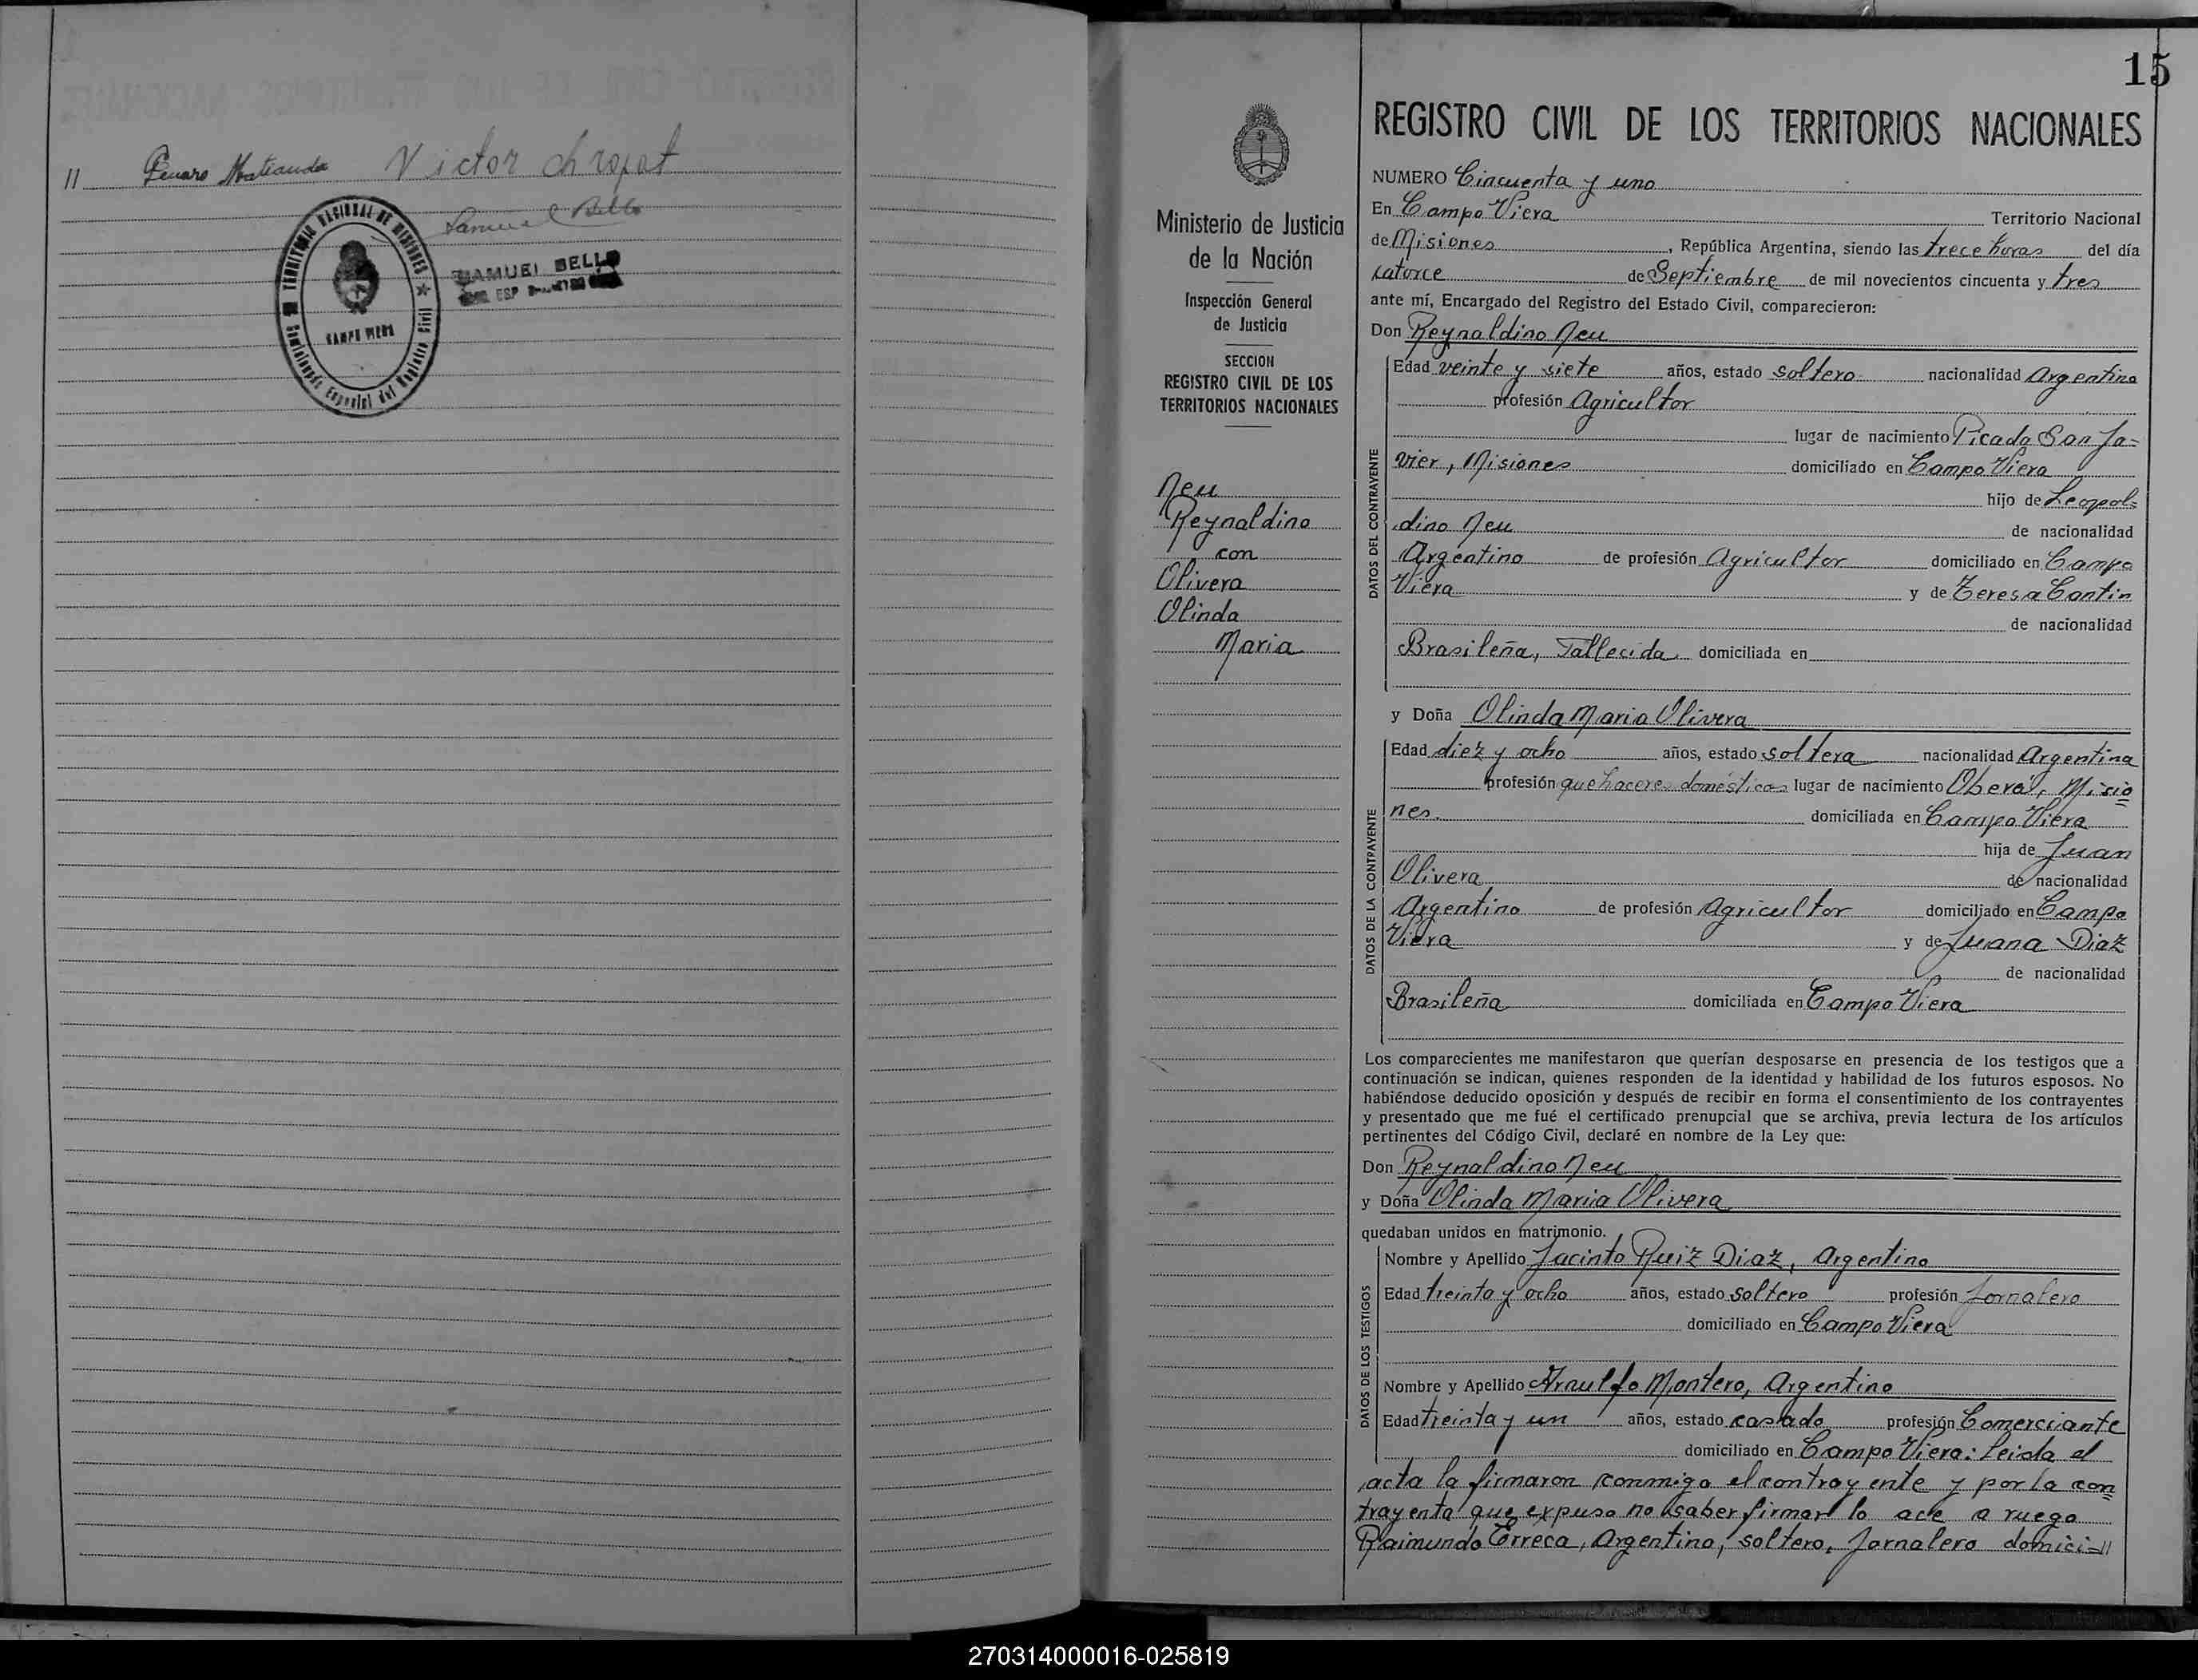 11 Victor
Samuel Bello
TERRITORIO NACIONAL DE MISIONES
CAMPO VIERA
Comisionado Especial del Registro Civil
SAMUEL BELLO
ESP
15
REGISTRO CIVIL DE LOS TERRITORIOS NACIONALES
Ministerio de Justicia
de la Nación
Inspección General
de Justicia
SECCION
REGISTRO CIVIL DE LOS
TERRITORIOS NACIONALES
Neu
Reynaldino
con
Olivera
Olinda
Maria
NUMERO Cincuenta y uno
En Campo Viera Territorio Nacional
de Misiones, República Argentina, siendo las trece horas del día
catorce de Septiembre de mil novecientos cincuenta y tres
ante mí, Encargado del Registro del Estado Civil, comparecieron:
Don Reynaldino Neu
DATOS DEL CONTRAYENTE
Edad veinte y siete años, estado soltero nacionalidad Argentino
profesión Agricultor
lugar de nacimiento Picada San Ja=
vier, Misiones domiciliado en Campo Viera
hijo de Leopol=
dino Neu de nacionalidad
Argentino de profesión Agricultor domiciliado en Campo
Viera y de Teresa Cantin
de nacionalidad
Brasileña, Fallecida domiciliada en
y Doña Olinda Maria Olivera
DATOS DE LA CONTRAYENTE
Edad diez y ocho años, estado soltera nacionalidad Argentina
profesión quehaceres domésticos lugar de nacimiento Oberá, Misio=
nes. domiciliada en Campo Viera
hija de Juan
Olivera de nacionalidad
Argentino de profesión Agricultor domiciliado en Campo
Viera y de Juana Diaz
de nacionalidad
Brasileña domiciliada en Campo Viera
Los comparecientes me manifestaron que querían desposarse en presencia de los testigos que a
continuación se indican, quienes responden de la identidad y habilidad de los futuros esposos. No
habiéndose deducido oposición y después de recibir en forma el consentimiento de los contrayentes
y presentado que me fué el certificado prenupcial que se archiva, previa lectura de los artículos
pertinentes del Código Civil, declaré en nombre de la Ley que:
Don Reynaldino Neu
y Doña Olinda Maria Olivera
quedaban unidos en matrimonio.
DATOS DE LOS TESTIGOS
Nombre y Apellido Jacinto Ruiz Diaz, Argentino
Edad treinta y ocho años, estado soltero profesión Jornalero
domiciliado en Campo Viera
Nombre y Apellido Arnulfo Montero, Argentino
Edad treinta y un años, estado casado profesión Comerciante
domiciliado en Campo Viera: Leida el
acta la firmaron conmigo el contrayente y por la con=
trayenta que expuso no saber firmar lo ace a ruego
Raimundo Erreca, Argentino, soltero, Jornalero domici=11
270314000016-025819